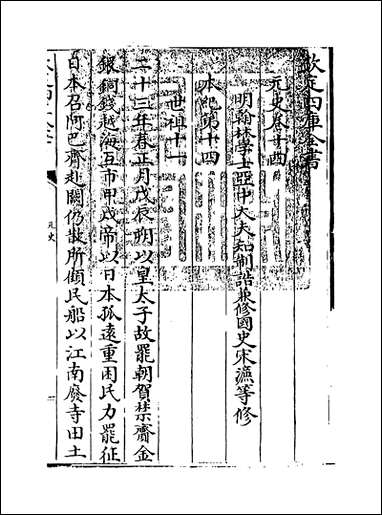 欽定四庫全書
元史卷十四
明翰林學士亞中大夫知制誥兼修國史宋濂等修
本紀第十四
世祖十一
二十三年春正月戊辰朔以皇太子故罷朝賀禁齎金
銀銅錢越海互市甲戌帝以日本孤遠重困民力罷征
日本召阿巴齊赴闕仍散所顧民船以江南廢寺田土
元史